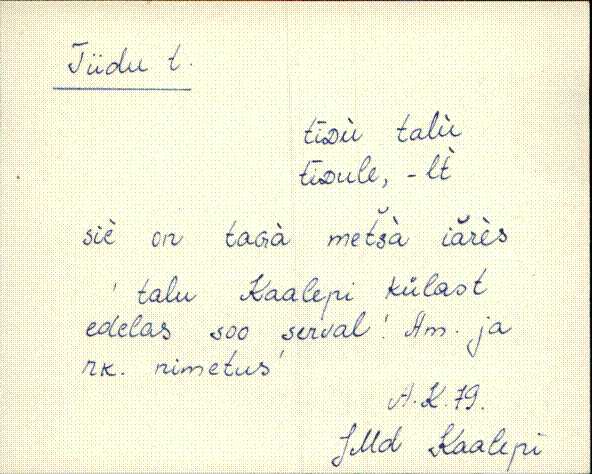 Tiidu t.
tīDù talù
tīDule, -lt̀
siè on taGà metšà iărès
' talu Kaalepi külast
edelas soo serval'. Am. ja
rk. nimetus'
A.K.79.
JMd Kaalepi